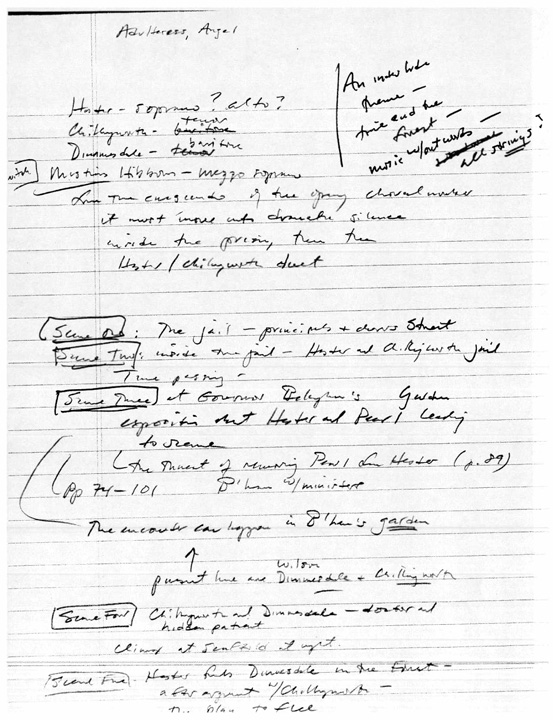 Adulteress, Angel
An interlude
theme —
time and the
forest —
music w/out words —
all strings?
Hester – soprano? alto?
tenor
Chillingworth – baritone
baritone
Dimmesdale – tenor
witch Mistress Hibbons – mezzo soprano
from the crescendo of the opening choral number
it must move into dramatic silence
inside the prison, then the
Hester / Chillingworth duet
Scene One: The jail – principals + chorus Street
Scene Two: inside the jail – Hester and Chillingworth jail
Time passing –
Scene Three at Governor Bellingham's Garden
exposition duet Hester and Pearl leading
to scene
the threat of removing Pearl from Hester (p. 89)
pp 74–101 B'ham w/ministers
The encounter can happen in B'ham's garden
Wilson
present here are Dimmesdale + Chillingworth
Scene Four Chillingworth and Dimmesdale – doctor and
hidden patient
climax at Scaffold at night
Scene Five: Hester finds Dimmesdale in the Forest –
after argument w/Chillingworth –
the plan to flee